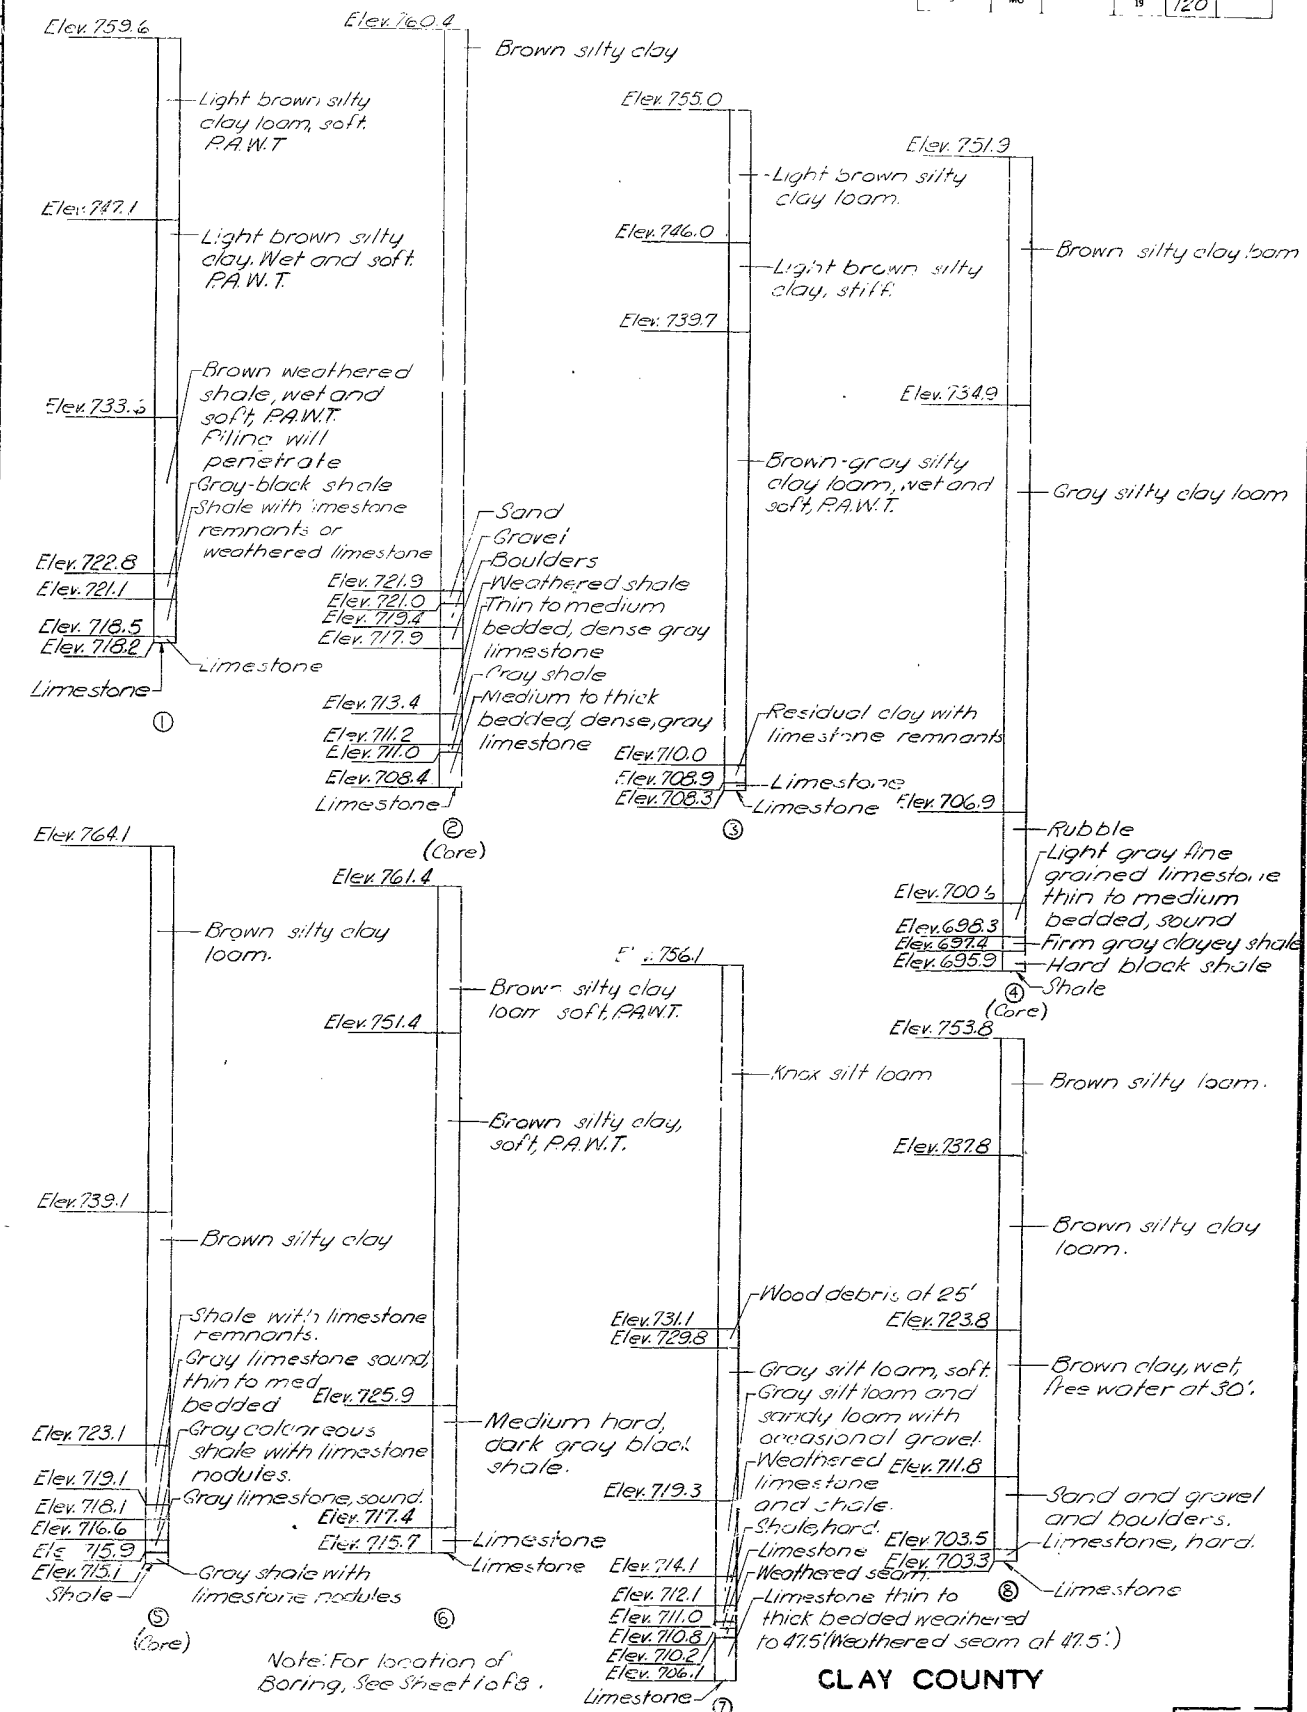 MO
19
120
Elev. 759.6
Light brown silty
clay loam, soft.
P.A.W.T
Elev. 747.1
Light brown silty
clay. Wet and soft.
P.A.W.T.
Elev. 733.
Brown weathered
shale, wet and
soft, P.A.W.T.
Piling will
penetrate
Gray-black shale
Shale with limestone
remnants or
weathered limestone
Elev. 722.8
Elev. 721.1
Elev. 718.5
Elev. 718.2
Limestone
Limestone
①
Elev. 760.4
Brown silty clay
Sand
Gravel
Boulders
Weathered shale
Thin to medium
bedded, dense gray
limestone
Gray shale
Medium to thick
bedded, dense, gray
limestone
Elev. 721.9
Elev. 721.0
Elev. 719.4
Elev. 717.9
Elev. 713.4
Elev. 711.2
Elev. 711.0
Elev. 708.4
Limestone
②
(Core)
Elev. 755.0
Light brown silty
clay loam.
Elev. 746.0
Light brown silty
clay, stiff.
Elev. 739.7
Brown-gray silty
clay loam, wet and
soft, P.A.W.T.
Residual clay with
limestone remnants
Elev. 710.0
Elev. 708.9
Limestone
Elev. 708.3
Limestone
③
Elev. 751.9
Brown silty clay loam
Elev. 734.9
Gray silty clay loam
Elev. 706.9
Rubble
Light gray fine
grained limestone
thin to medium
bedded, sound
Elev. 700.
Elev. 698.3
Elev. 697.4
Firm gray clayey shale
Elev. 695.9
Hard black shale
Shale
④
(Core)
Elev. 764.1
Brown silty clay
loam.
Elev. 739.1
Brown silty clay
Shale with limestone
remnants.
Gray limestone sound,
thin to med
bedded
Gray calcareous
shale with limestone
nodules.
Gray limestone, sound.
Elev. 723.1
Elev. 719.1
Elev. 718.1
Elev. 716.6
715.9
Elev. 715.1
Shale
Gray shale with
limestone nodules
⑤
(Core)
Elev. 761.4
Brown silty clay
loam soft, P.A.W.T.
Elev. 751.4
Brown silty clay,
soft, P.A.W.T.
Elev. 725.9
Medium hard,
dark gray black
shale.
Elev. 717.4
Elev. 715.7
Limestone
Limestone
⑥
756.1
Knox silt loam
Wood debris at 25'
Elev. 731.1
Elev. 729.8
Gray silt loam, soft.
Gray silt loam and
sandy loam with
occasional gravel.
Weathered
limestone
and shale.
Elev. 719.3
Shale, hard.
Limestone
Weathered seam.
Limestone thin to
thick bedded weathered
to 47.5' (Weathered seam at 47.5'.)
Elev. 714.1
Elev. 712.1
Elev. 711.0
Elev. 710.8
Elev. 710.2
Elev. 706.1
Limestone
⑦
Elev. 753.8
Brown silty loam.
Elev. 737.8
Brown silty clay
loam.
Elev. 723.8
Brown clay, wet,
free water at 30'.
Elev. 711.8
Sand and gravel
and boulders.
Elev. 703.5
Limestone, hard.
Elev. 703.3
Limestone
⑧
Note: For location of
Boring, See Sheet 1 of 8.
CLAY COUNTY